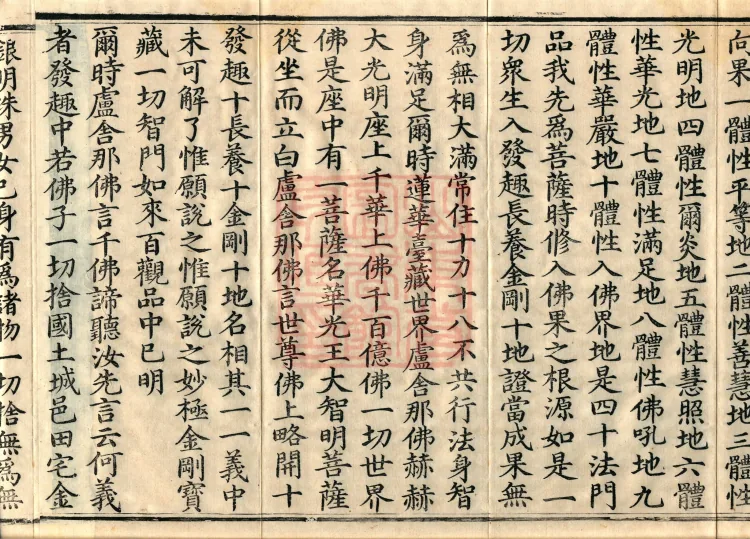 向果一體性平等地二體性善慧地三體性
光明地四體性爾炎地五體性慧照地六體
性華光地七體性滿足地八體性佛吼地九
體性華嚴地十體性入佛界地是四十法門
品我先爲菩薩時修入佛果之根源如是一
切衆生入發趣長養金剛十地證當成果無
爲無相大滿常住十力十八不共行法身智
身滿足爾時蓮華臺藏世界盧舍那佛赫赫
大光明座上千華上佛千百億佛一切世界
佛是座中有一菩薩名華光王大智明菩薩
從坐而立白盧舍那佛言世尊佛上略開十
發趣十長養十金剛十地名相其一一義中
未可解了惟願說之惟願說之妙極金剛寶
藏一切智門如來百觀品中已明
爾時盧舍那佛言千佛諦聽汝先言云何義
者發趣中若佛子一切捨國土城邑田宅金
銀明珠男女已身有爲諸物一切捨無爲無